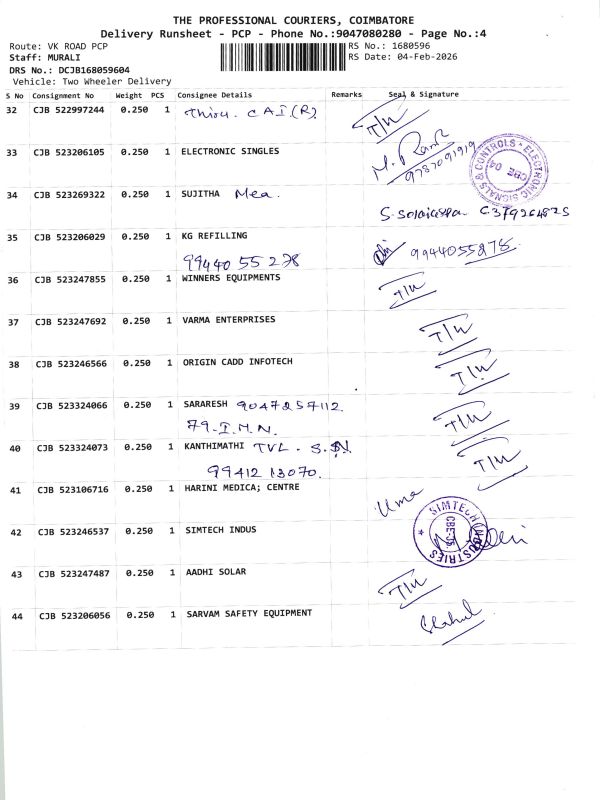 THE PROFESSIONAL COURIERS, COIMBATORE
Delivery Runsheet - PCP - Phone No.:9047080280 - Page No.:4
Route: VK ROAD PCP RS No.: 1680596
Staff: MURALI RS Date: 04-Feb-2026
DRS No.: DCJB168059604
Vehicle: Two Wheeler Delivery
S No Consignment No Weight PCS Consignee Details Remarks Seal & Signature
32 CJB 522997244 0.250 1 Thiru. C A I (R) T/W
33 CJB 523206105 0.250 1 ELECTRONIC SINGLES M. Ram 9787091919
ELECTRONIC SIGNALS & CONTROLS * CBE 04
34 CJB 523269322 0.250 1 SUJITHA Mea.
35 CJB 523206029 0.250 1 KG REFILLING 9944055278
99440 55 278
36 CJB 523247855 0.250 1 WINNERS EQUIPMENTS T/W
37 CJB 523247692 0.250 1 VARMA ENTERPRISES T/W
38 CJB 523246566 0.250 1 ORIGIN CADD INFOTECH T/W
39 CJB 523324066 0.250 1 SARARESH 9047257112 T/W
79-I.M.N.
40 CJB 523324073 0.250 1 KANTHIMATHI TVL. S.N. T/W
99412 13070.
41 CJB 523106716 0.250 1 HARINI MEDICA; CENTRE Uma
42 CJB 523246537 0.250 1 SIMTECH INDUS
SIMTECH INDUSTRIES *
43 CJB 523247487 0.250 1 AADHI SOLAR T/W
44 CJB 523206056 0.250 1 SARVAM SAFETY EQUIPMENT